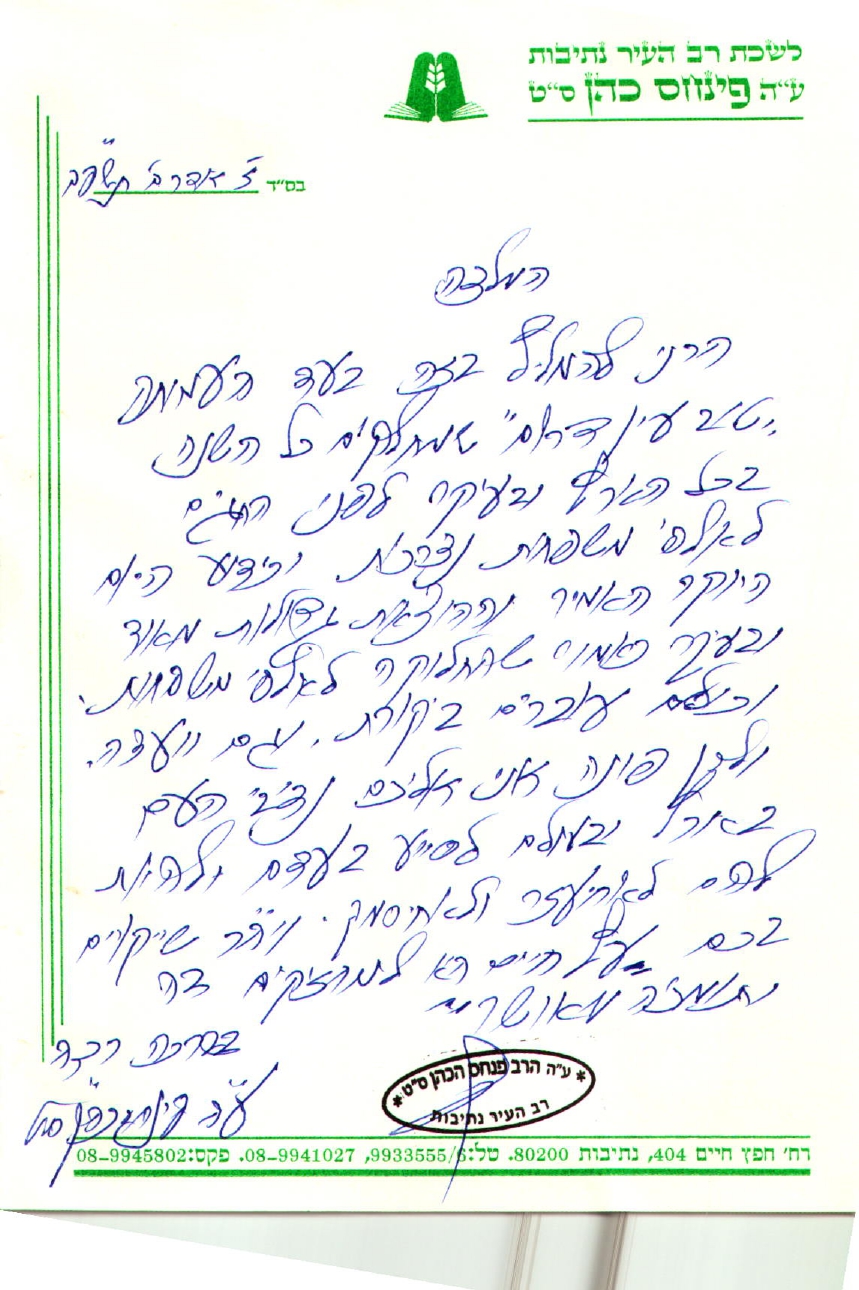 לשכת רב העיר נתיבות
ע״ה פינחס כהן ס״ט
בס״ד ז׳ אדר ב׳ תשפ״ב
המלצה
הרני להמליץ בזה בעד העמותה
"טוב עין דרום" שמחלקים כל השנה
בכל הארץ ובעיקר לפני החגים
לאלפי משפחות נצרכות וכידוע היום
היוקר האמיר וההוצאות גדולות מאוד
ובעיקר כאמור שהחלוקה לאלפי משפחות.
וכולם עוברים ביקורת, וגם וועדה.
ולכן פונה אני אליכם נדיבי העם
בארץ ובעולם לסייע בעדם ולהיות
להם לאחיעזר ולאחיסמך. ויה״ר שיקויים
בכם עץ חיים היא למחזיקים בה
ותומכיה מאושר
בברכה רבה
ע״ה פינחס כהן ס״ט
ע״ה הרב פנחס הכהן ס״ט
רב העיר נתיבות
רח׳ חפץ חיים 404, נתיבות 80200. טל: 9933555/6, 08-9941027. פקס: 08-9945802